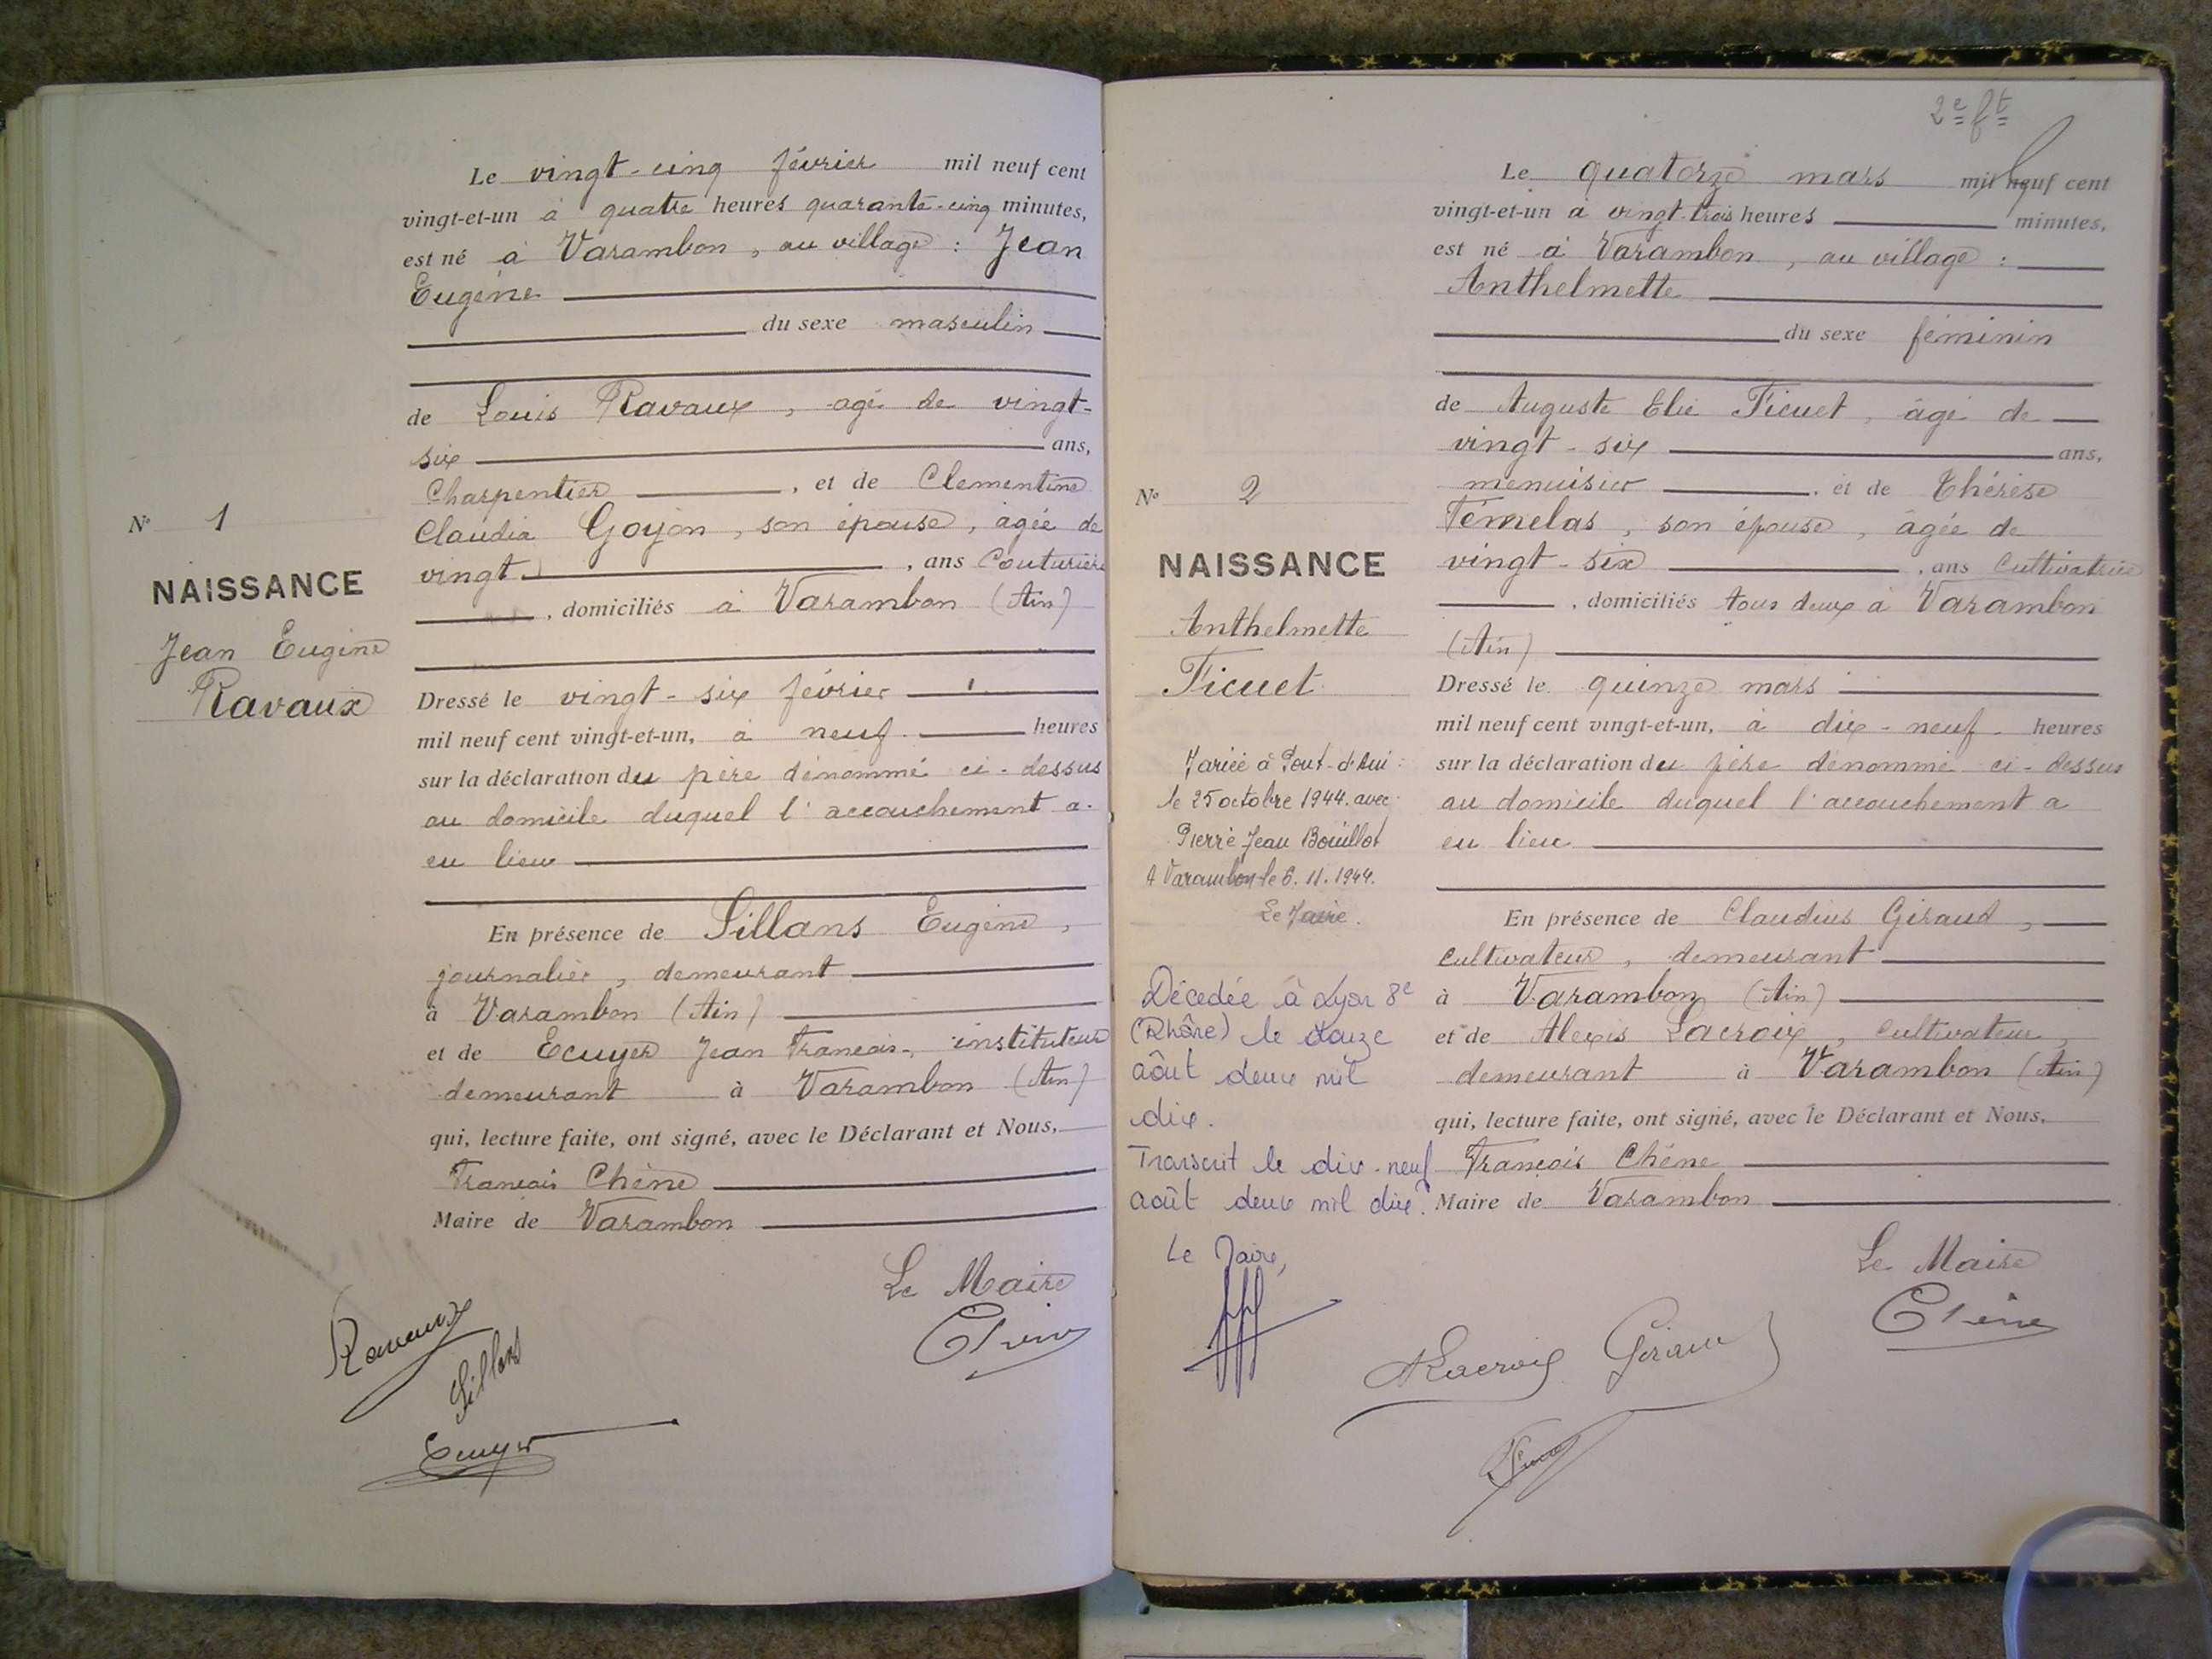 N° 1
NAISSANCE
Jean Eugène
Ravaux
Le vingt-cinq février mil neuf cent
vingt-et-un à quatre heures quarante-cinq minutes,
est né à Varambon, au village : Jean
Eugène
du sexe masculin
de Louis Ravaux, agé de vingt-
six ans,
Charpentier, et de Clementine
Claudia Goyon, son épouse, agée de
vingt, ans Couturière
, domiciliés à Varambon (Ain)
Dressé le vingt-six février
mil neuf cent vingt-et-un, à neuf heures
sur la déclaration du père dénommé ci-dessus
au domicile duquel l'accouchement a
eu lieu
En présence de Sillans Eugène,
journalier, demeurant
à Varambon (Ain)
et de Ecuyer Jean François, instituteur
demeurant à Varambon (Ain)
qui, lecture faite, ont signé, avec le Déclarant et Nous,
François Chêne
Maire de Varambon
Le Maire
Chêne
Ravaux
Sillans
Ecuyer
2e ft
N° 2
NAISSANCE
Anthelmette
Ficuet
Mariée à Pont-d'Ain
le 25 octobre 1944 avec
Pierre Jean Bouillot
A Varambon le 6.11.1944.
Le Maire.
Décedée à Lyon 8e
(Rhône) le douze
août deux mil
dix.
Transcrit le dix-neuf
août deux mil dix.
Le Maire,
Le quatorze mars mil neuf cent
vingt-et-un à vingt-trois heures minutes,
est né à Varambon, au village :
Anthelmette
du sexe féminin
de Auguste Elie Ficuet, âgé de
vingt-six ans,
menuisier, et de Thérèse
Témelas, son épouse, âgée de
vingt-six, ans Cultivatrice
, domiciliés tous deux à Varambon
(Ain)
Dressé le quinze mars
mil neuf cent vingt-et-un, à dix-neuf heures
sur la déclaration du père dénommé ci-dessus
au domicile duquel l'accouchement a
eu lieu
En présence de Claudius Giraud,
cultivateur, demeurant
à Varambon (Ain)
et de Alexis Lacroix, cultivateur,
demeurant à Varambon (Ain)
qui, lecture faite, ont signé, avec le Déclarant et Nous,
François Chêne
Maire de Varambon
Le Maire
Chêne
ALacroix Giraud